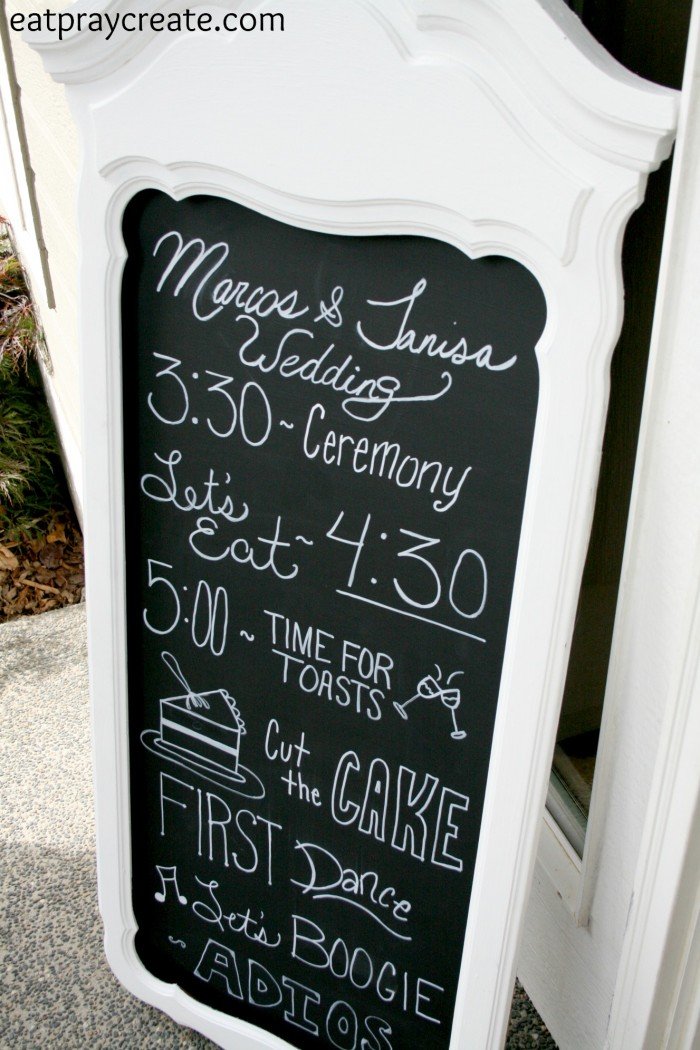 eatpraycreate.com
Marcos & Tanisa
Wedding
3:30 ~ Ceremony
Let's
Eat ~ 4:30
5:00 ~ TIME FOR
TOASTS
Cut
the CAKE
FIRST Dance
Let's BOOGIE
~ ADIOS